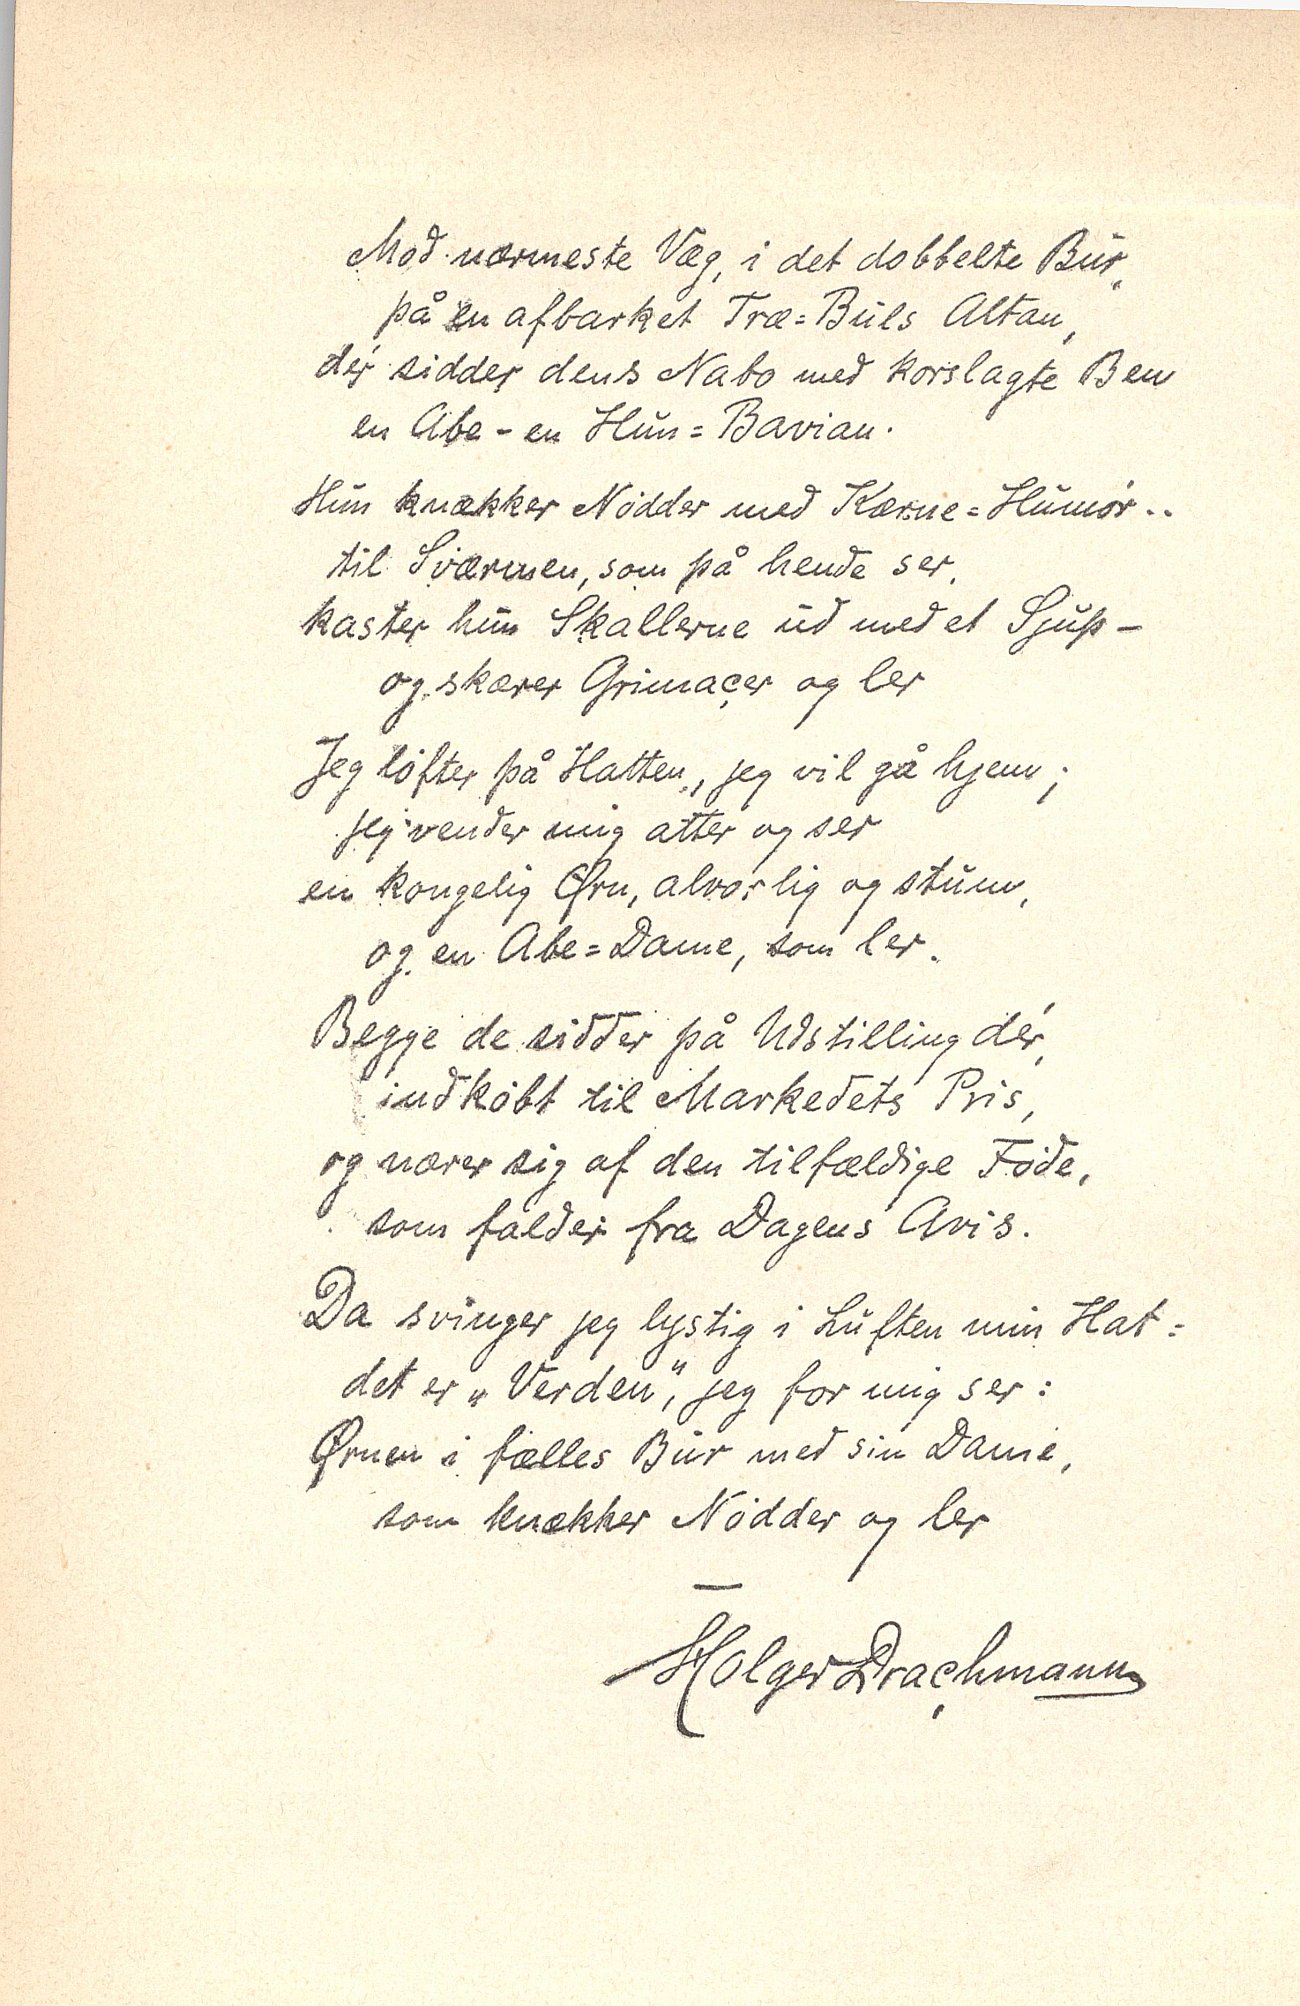 Mod nærmeste Væg, i det dobbelte Bur,
på en afbarket Træ=Buls Altan,
dér sidder dens Nabo med korslagte Ben
en Abe - en Hun=Bavian.
Hun knækker Nødder med Kærne=Humør..
til Sværmen, som på hende ser,
kaster hun Skallerne ud med et Sjup -
og skærer Grimaçer og ler
Jeg løfter på Hatten, jeg vil gå hjem;
jeg vender mig atter og ser
en kongelig Ørn, alvorlig og stum,
og en Abe=Dame, som ler.
Begge de sidder på Udstilling dér,
indkøbt til Markedets Pris,
og nærer sig af den tilfældige Føde,
som falder fra Dagens Avis.
Da svinger jeg lystig i Luften min Hat:
det er „Verden", jeg for mig ser:
Ørnen i fælles Bur med sin Dame,
som knækker Nødder og ler
—
Holger Drachmann